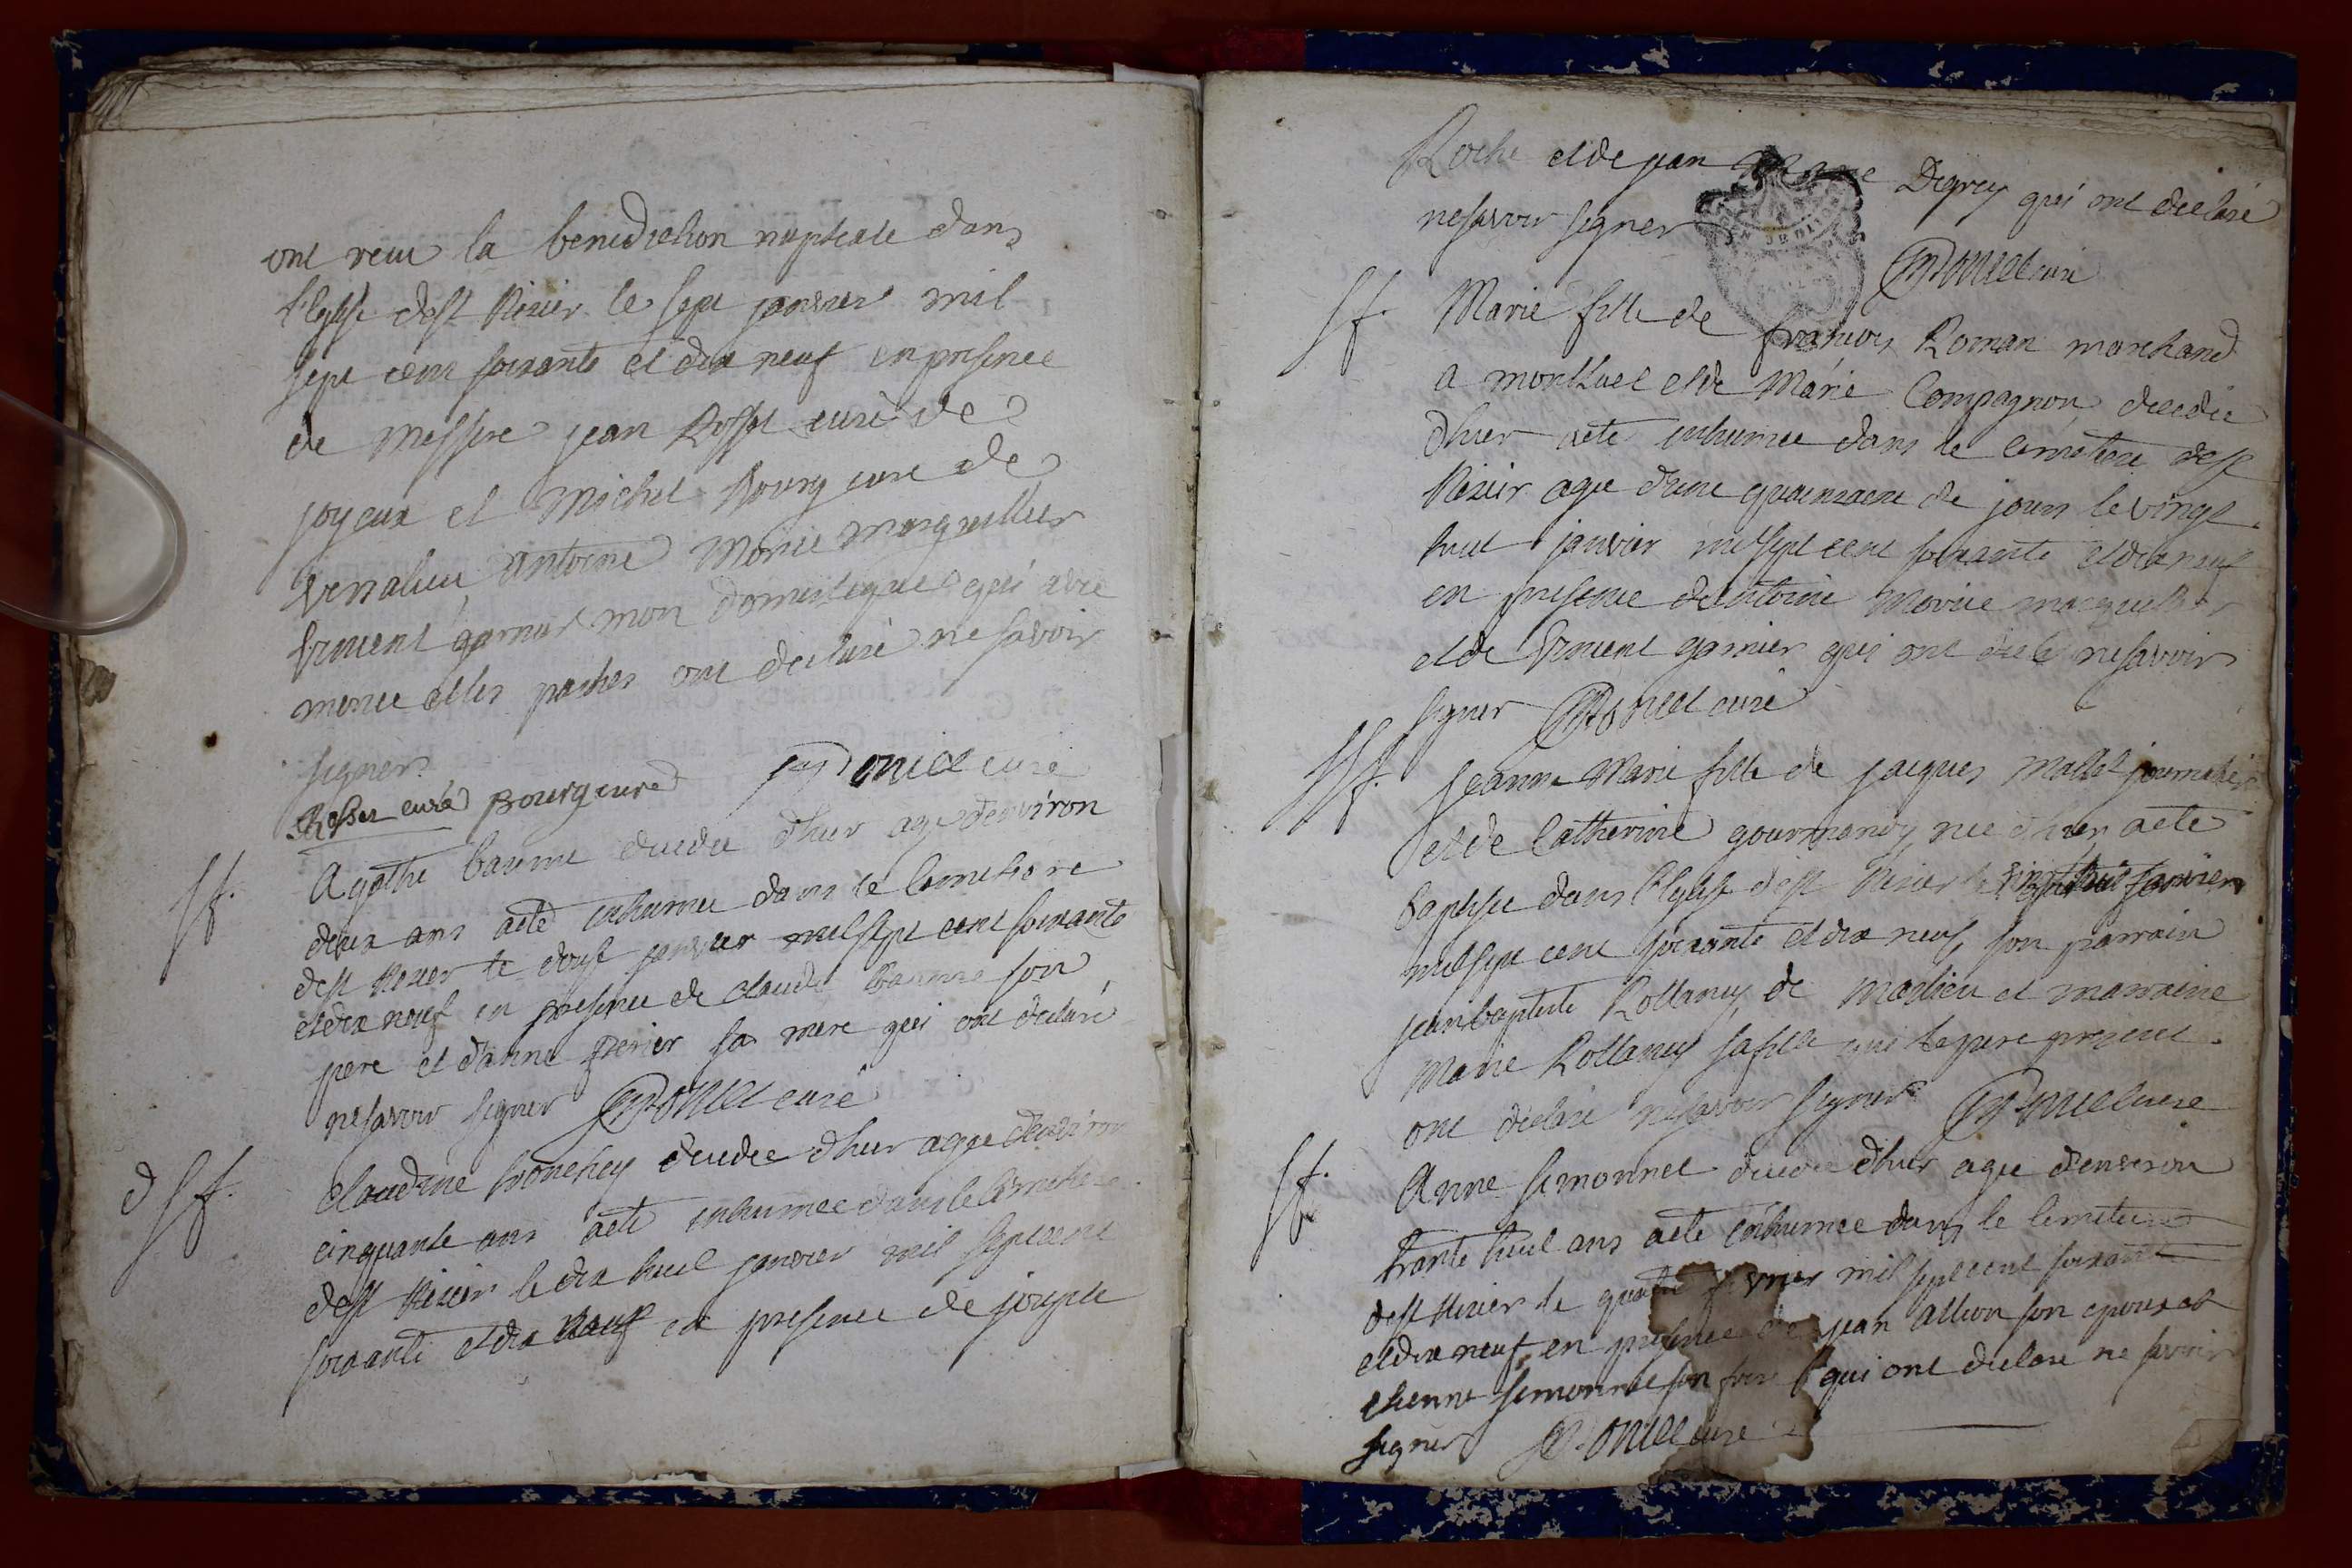 ont receu la benediction nuptiale dans
l'eglise dest Nizier le sept janvier mil
sept cent soixante et dix neuf en presence
de messire jean Rosset curé de
joyeux et michel Bourg curé de
versalieu antoine Morice marguillier
vincent garnier mon domestique qui avec
les parties ont declaré ne savoir
signer.
Rosset curé Bourg curé curé
sf. Agathe baume decedée d'hier agée d'environ
deux ans a eté inhumée dans le cimetiere
dest Nizier le douse janvier mil sept cent soixante
et dix neuf en presence de claude baume son
pere et d'anne perier sa mere qui ont declaré
ne savoir signer curé
d sf. claudine decedée d'hier agée d'environ
cinquante ans a eté inhumée dans le cimetiere
dest Nizier le dix huit janvier mil sept cent
soixante et dix neuf en presence de joseph
Roche et de jean Degrey qui ont declaré
ne savoir signer
curé
sf. Marie fille de francois Roman marchand
a montluel et de Marie Compagnon decedée
d'hier a eté inhumée dans le cimetiere dest
Nizier agée d'une quainzaine de jours le vingt
huit janvier mil sept cent soixante et dix neuf
en presence de antoine Morice marguillier
et de vincent garnier qui ont ne savoir
signer curé
sf. jeanne Marie fille de jacques Mallet journalier
et de Catherine gourmandy née d'hier a eté
baptisée dans l'eglise dest Nizier le vingt huit janvier
mil sept cent soixante et dix neuf, son parrain
jean baptiste Rollancy de Marlieu et marraine
Marie Rollancy sa fille qui le pere present
ont declaré ne savoir signer curé
sf. Anne simonnet decedée d'hier agée d'environ
trante huit ans a eté inhumée dans le cimetiere
dest Nizier le quatre fevrier mil sept cent soixante
et dix neuf en presence de jean allion son epoux et
etienne simonnet son frere qui ont declaré ne savoir
signer curé